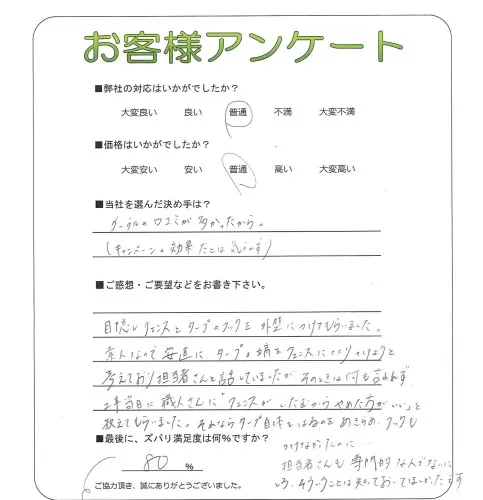 お客様アンケート
■弊社の対応はいかがでしたか？
大変良い 良い 普通 不満 大変不満
■価格はいかがでしたか？
大変安い 安い 普通 高い 大変高い
■当社を選んだ決め手は？
グーグルの口コミが多かったから。
(キャンペーンの効果だとは気づかず)
■ご感想・ご要望などをお書き下さい。
目隠しフェンスとタープのフックを外壁につけてもらいました。
素人なので安直にタープの端をフェンスにくくりつけようと
考えており担当者さんと話していましたがそのときは何も言われず、
工事当日に職人さんに「フェンスがいたむからやめた方がいい」と
教えてもらいました。それならタープ自体をはるのをあきらめ、フックも
つけなかったのに…
■最後に、ズバリ満足度は何%ですか？
担当者さんも専門的な人でないに
80 %
しろ、そういうことは知っておいてほしかったです
ご協力頂き、誠にありがとうございました。